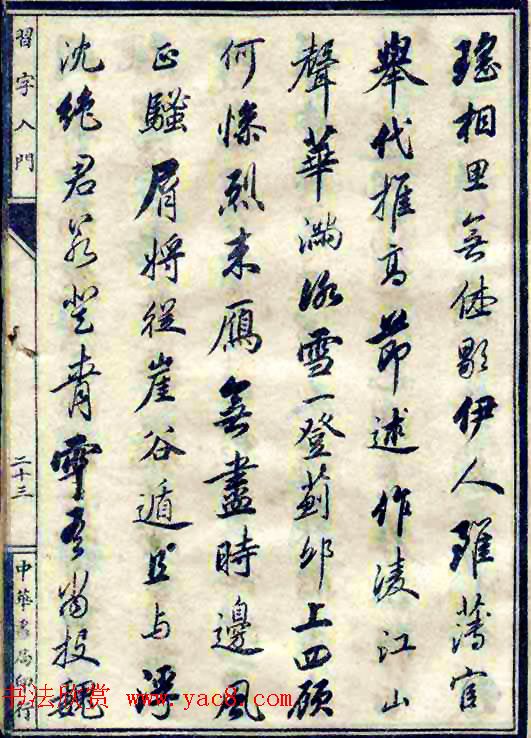 瑤相思無休歇伊人雖薄宦
舉代推高節述作凌江山
聲華滿冰雪一登薊邱上四顧
何慘烈來雁無盡時邊風
正騷屑將從崖谷遁且与浮
沈絕君若登青雲吾當投魏
習字入門
二十三
中華書局印行
书法欣赏 www.yac8.com